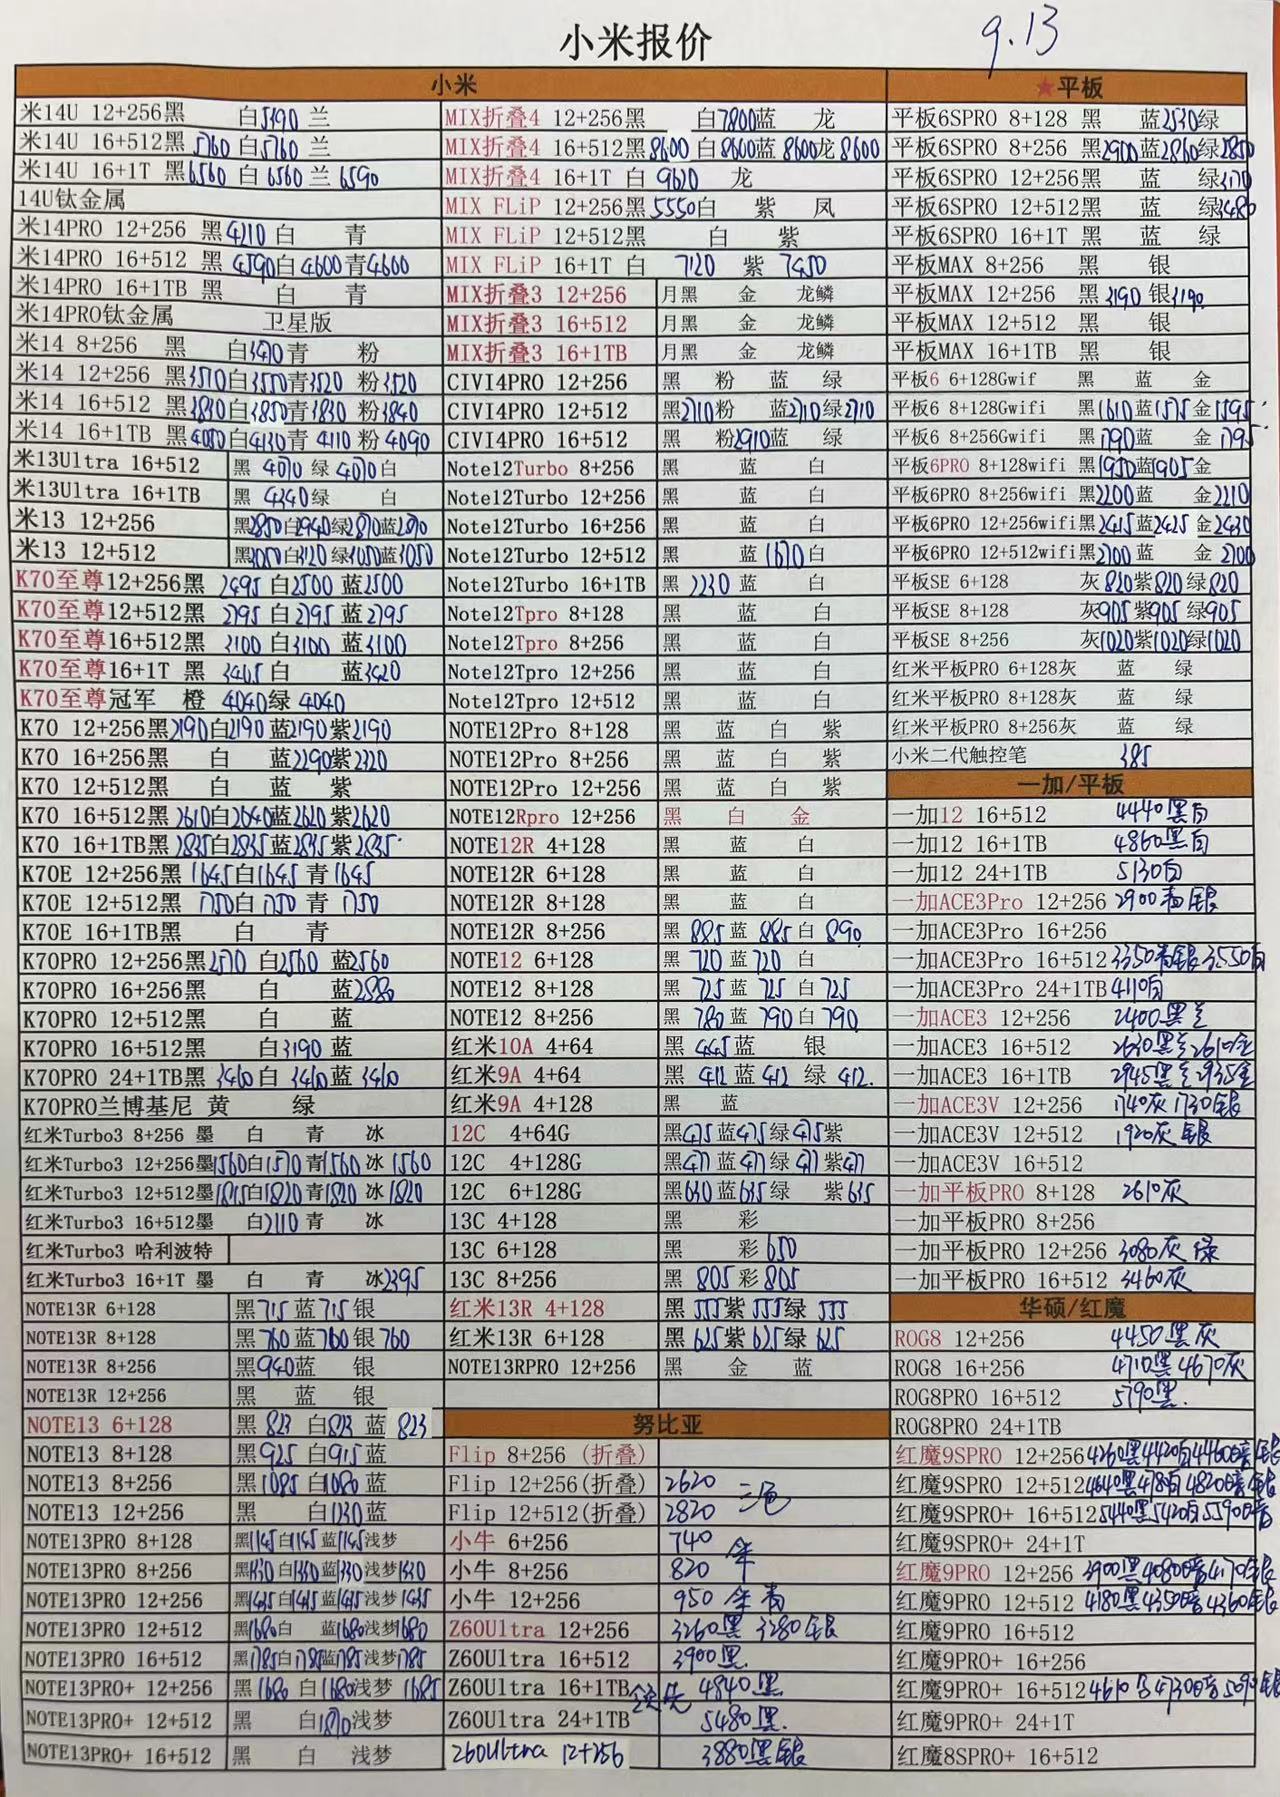 小米报价
9.13
小米
米14U 12+256黑 白5490 兰
米14U 16+512黑5760 白5760 兰
米14U 16+1T 黑6560 白6560 兰6590
14U钛金属
米14PRO 12+256 黑4210白 青
米14PRO 16+512 黑4590白4600青4600
米14PRO 16+1TB 黑 白 青
米14PRO钛金属 卫星版
米14 8+256 黑 白3470青 粉
米14 12+256 黑3510白3550青3520 粉3520
米14 16+512 黑3830白3850青3830 粉3840
米14 16+1TB 黑4080白4130青4110粉4090
米13Ultra 16+512 黑4070绿4070白
米13Ultra 16+1TB 黑4340绿 白
米13 12+256 黑2850白2940绿2870蓝2870
米13 12+512 黑3050白3120绿3050蓝3050
K70至尊12+256黑 2495 白2500 蓝2500
K70至尊12+512黑 2795 白2795 蓝2795
K70至尊16+512黑 3100 白3100 蓝3100
K70至尊16+1T 黑 3465白 蓝3420
K70至尊冠军 橙 4040绿 4040
K70 12+256黑2190白2190蓝2190紫2190
K70 16+256黑 白 蓝2290紫2320
K70 12+512黑 白 蓝 紫
K70 16+512黑2610白2640蓝2620紫2620
K70 16+1TB黑2835白2835蓝2835紫2835
K70E 12+256黑1645白1645 青1645
K70E 12+512黑 1750白1750 青 1750
K70E 16+1TB黑 白 青
K70PRO 12+256黑2570 白2560 蓝2560
K70PRO 16+256黑 白 蓝2880
K70PRO 12+512黑 白 蓝
K70PRO 16+512黑 白3190 蓝
K70PRO 24+1TB黑 3460白 3460蓝 3460
K70PRO兰博基尼 黄 绿
红米Turbo3 8+256 墨 白 青 冰
红米Turbo3 12+256墨1560白1570青1560 冰 1560
红米Turbo3 12+512墨1815白1820青1820 冰 1820
红米Turbo3 16+512墨 白2110 青 冰
红米Turbo3 哈利波特
红米Turbo3 16+1T 墨 白 青 冰2395
NOTE13R 6+128 黑715蓝715银
NOTE13R 8+128 黑760蓝760银760
NOTE13R 8+256 黑940蓝 银
NOTE13R 12+256 黑 蓝 银
NOTE13 6+128 黑 823 白823 蓝 823
NOTE13 8+128 黑925 白915 蓝
NOTE13 8+256 黑1085 白1080 蓝
NOTE13 12+256 黑 白1130 蓝
NOTE13PRO 8+128 黑1145白1145蓝1145浅梦
NOTE13PRO 8+256 黑1330白1330蓝1330浅梦1330
NOTE13PRO 12+256 黑1435白1415蓝1415浅梦1435
NOTE13PRO 12+512 黑1680白 蓝1680浅梦1680
NOTE13PRO 16+512 黑1785白1785蓝1785浅梦1785
NOTE13PRO+ 12+256 黑1680 白1680浅梦 1685
NOTE13PRO+ 12+512 黑 白1870浅梦
NOTE13PRO+ 16+512 黑 白 浅梦
MIX折叠4 12+256黑 白7800蓝 龙
MIX折叠4 16+512黑8600 白8600蓝 8600龙8600
MIX折叠4 16+1T 白 9620 龙
MIX FLiP 12+256黑5550白 紫 凤
MIX FLiP 12+512黑 白 紫
MIX FLiP 16+1T 白 7120 紫 7450
MIX折叠3 12+256 月黑 金 龙鳞
MIX折叠3 16+512 月黑 金 龙鳞
MIX折叠3 16+1TB 月黑 金 龙鳞
CIVI4PRO 12+256 黑 粉 蓝 绿
CIVI4PRO 12+512 黑2710粉 蓝2710绿2710
CIVI4PRO 16+512 黑 粉2910蓝 绿
Note12Turbo 8+256 黑 蓝 白
Note12Turbo 12+256 黑 蓝 白
Note12Turbo 16+256 黑 蓝 白
Note12Turbo 12+512 黑 蓝1670白
Note12Turbo 16+1TB 黑 2230 蓝 白
Note12Tpro 8+128 黑 蓝 白
Note12Tpro 8+256 黑 蓝 白
Note12Tpro 12+256 黑 蓝 白
Note12Tpro 12+512 黑 蓝 白
NOTE12Pro 8+128 黑 蓝 白 紫
NOTE12Pro 8+256 黑 蓝 白 紫
NOTE12Pro 12+256 黑 蓝 白 紫
NOTE12Rpro 12+256 黑 白 金
NOTE12R 4+128 黑 蓝 白
NOTE12R 6+128 黑 蓝 白
NOTE12R 8+128 黑 蓝 白
NOTE12R 8+256 黑 885 蓝 885 白 890
NOTE12 6+128 黑 720 蓝 720 白
NOTE12 8+128 黑 725 蓝 725 白 725
NOTE12 8+256 黑 780 蓝 790 白 790
红米10A 4+64 黑 445蓝 银
红米9A 4+64 黑 412 蓝 412 绿 412.
红米9A 4+128 黑 蓝
12C 4+64G 黑475蓝475绿475紫
12C 4+128G 黑477 蓝477绿 477紫477
12C 6+128G 黑630蓝635绿 紫635
13C 4+128 黑 彩
13C 6+128 黑 彩650
13C 8+256 黑 805彩805
红米13R 4+128 黑 555紫555绿 555
红米13R 6+128 黑 625紫625绿 625
NOTE13RPRO 12+256 黑 金 蓝
努比亚
Flip 8+256 (折叠)
Flip 12+256(折叠) 2620 三色
Flip 12+512(折叠) 2820
小牛 6+256 740
小牛 8+256 820
小牛 12+256 950
Z60Ultra 12+256 3260黑 3280银
Z60Ultra 16+512 3900黑.
Z60Ultra 16+1TB 4840黑
Z60Ultra 24+1TB 5480黑.
Z60Ultra 12+256 3880黑银
★平板
平板6SPRO 8+128 黑 蓝2530绿
平板6SPRO 8+256 黑2900蓝2860绿2850
平板6SPRO 12+256黑 蓝 绿3170
平板6SPRO 12+512黑 蓝 绿3480
平板6SPRO 16+1T 黑 蓝 绿
平板MAX 8+256 黑 银
平板MAX 12+256 黑3190 银3190
平板MAX 12+512 黑 银
平板MAX 16+1TB 黑 银
平板6 6+128Gwif 黑 蓝 金
平板6 8+128Gwifi 黑1610蓝1575金1595
平板6 8+256Gwifi 黑1790蓝 金1795
平板6PRO 8+128wifi 黑1950蓝1905金
平板6PRO 8+256wifi 黑2200蓝 金2210
平板6PRO 12+256wifi黑2415蓝2425 金2430
平板6PRO 12+512wifi黑2700蓝 金 2700
平板SE 6+128 灰820紫820绿820
平板SE 8+128 灰905紫905绿905
平板SE 8+256 灰1020紫1020绿1020
红米平板PRO 6+128灰 蓝 绿
红米平板PRO 8+128灰 蓝 绿
红米平板PRO 8+256灰 蓝 绿
小米二代触控笔 385
一加/平板
一加12 16+512 4440黑白
一加12 16+1TB 4860黑白
一加12 24+1TB 5130白
一加ACE3Pro 12+256 2900青银
一加ACE3Pro 16+256
一加ACE3Pro 16+512 3350青银3550白
一加ACE3Pro 24+1TB 4110白
一加ACE3 12+256 2400黑兰
一加ACE3 16+512 2630黑兰2610金
一加ACE3 16+1TB 2945黑兰2935金
一加ACE3V 12+256 1740灰 1730银
一加ACE3V 12+512 1920灰 银
一加ACE3V 16+512
一加平板PRO 8+128 2610灰
一加平板PRO 8+256
一加平板PRO 12+256 3080灰 绿
一加平板PRO 16+512 3460灰
华硕/红魔
ROG8 12+256 4450黑灰
ROG8 16+256 4710黑4670灰
ROG8PRO 16+512 5790黑.
ROG8PRO 24+1TB
红魔9SPRO 12+256 4260黑4420白4460暗银
红魔9SPRO 12+512 4640黑4780白4820暗银
红魔9SPRO+ 16+512 5440黑5420白5590暗
红魔9SPRO+ 24+1T
红魔9PRO 12+256 3900黑4080暗4170银
红魔9PRO 12+512 4180黑4350暗4360银
红魔9PRO 16+512
红魔9PRO+ 16+256
红魔9PRO+ 16+512 4610 4730暗5090银
红魔9PRO+ 24+1T
红魔8SPRO+ 16+512